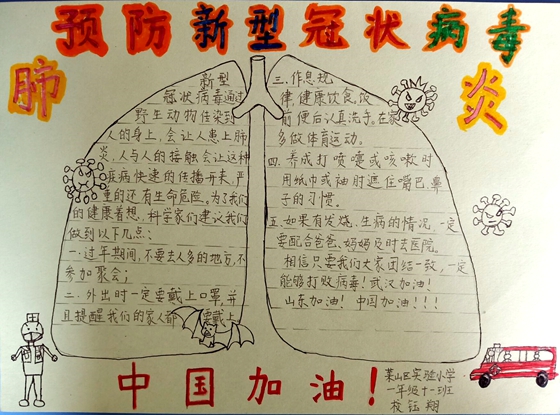 预防新型冠状病毒
肺
炎
新型
冠状病毒通过
野生动物传染到
人的身上，会让人患上肺
炎，人与人的接触会让这种
疾病快速的传播开来，严
重的还有生命危险。为了我们
的健康着想，科学家们建议我们
做到以下几点：
一.过年期间，不要去人多的地方，不
参加聚会；
二.外出时一定要戴上口罩，并
且提醒我们的家人都要戴上
三.作息规
律，健康饮食，饭
前便后认真洗手。在家
多做体育运动。
四.养成打喷嚏或咳嗽时
用纸巾或袖肘遮住嘴巴、鼻
子的习惯。
五.如果有发烧、生病的情况，一定
要配合爸爸、妈妈及时去医院。
相信只要我们大家团结一致，一定
能够打败病毒！武汉加油！
山东加油！中国加油！！！
中国加油！
莱山区实验小学
一年级十一班
钰翔